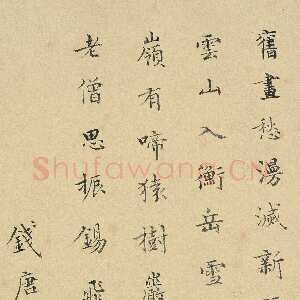 舊畫愁漫滅新
雲山入衡岳雪
嶺有啼猿樹巖
老僧思振錫飛
錢唐
Shufawang.CN